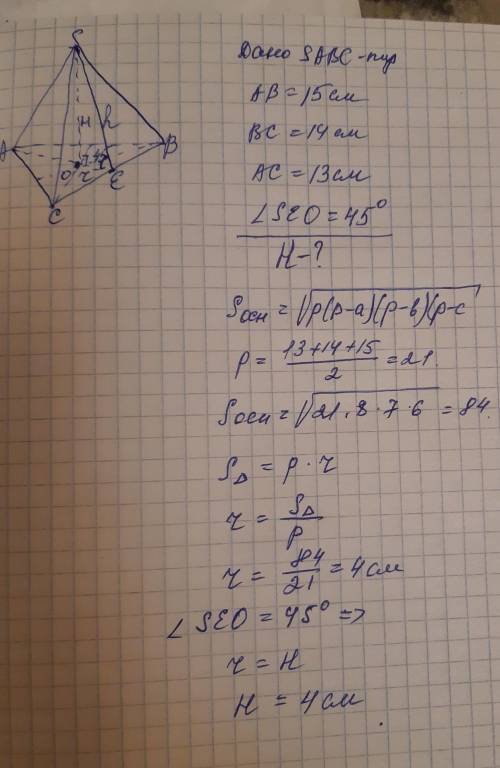 S
H h
A B
O r E
C
Дано SABC-пир
AB = 15 см
BC = 14 см
AC = 13 см
∠SEO = 45°
H-?
Sосн = √p(p-a)(p-b)(p-c
p = 13+14+15 / 2 = 21.
Sосн = √21·8·7·6 = 84.
S△ = p·r
r = S△ / p
r = 84 / 21 = 4 см
∠SEO = 45° =>
r = H
H = 4 см.